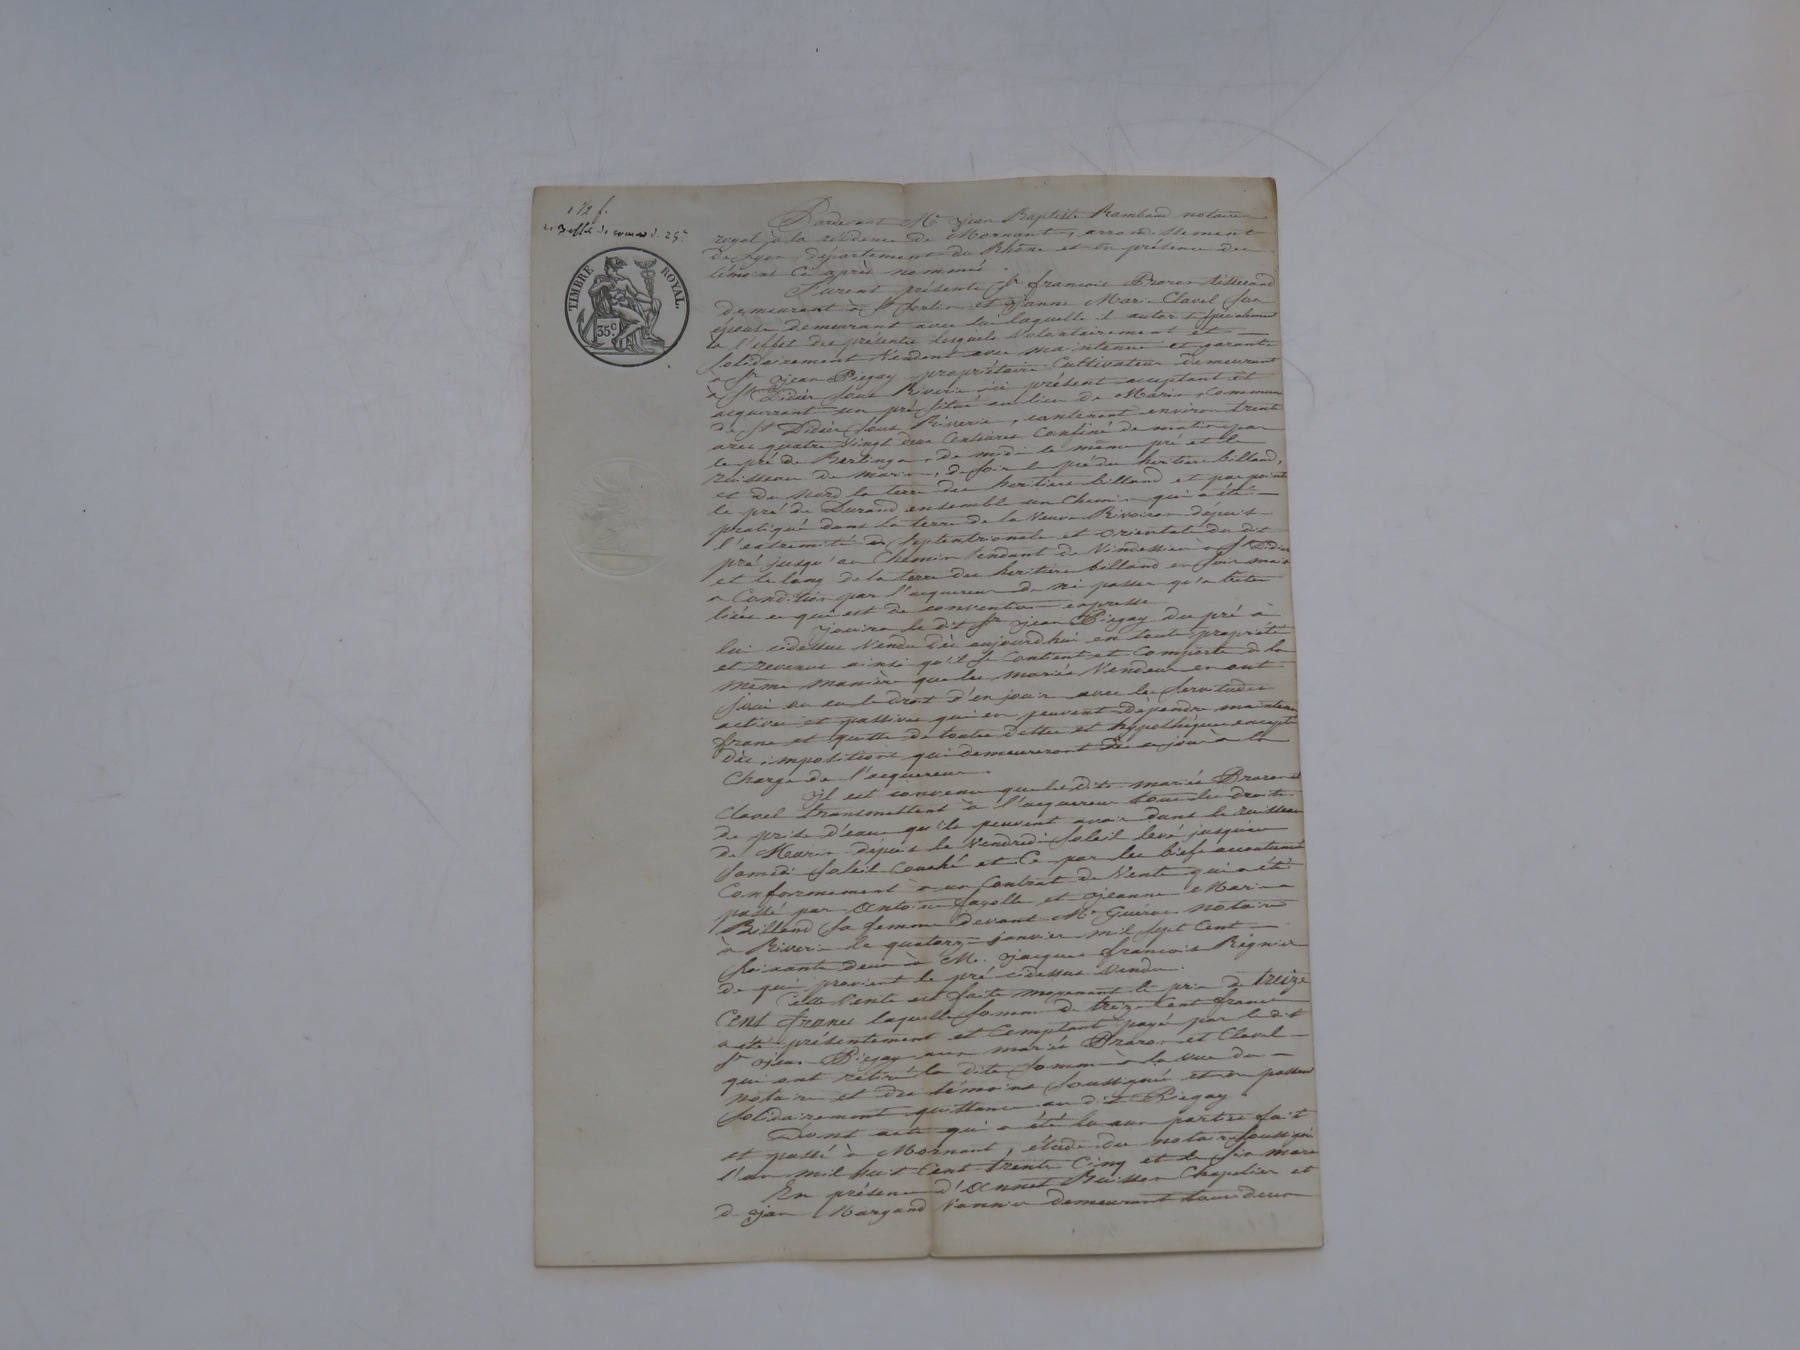 1 1/2 f.
TIMBRE ROYAL.
35 c.
Pardevant Me Jean Baptiste Rambaud notaire
royal à la résidence de Mornant, arrondissement
de Lyon, département du Rhône et en présence des
témoins ci après nommés.
Furent présents Sr françois Brazon tisserand
demeurant à St et Jeanne Marie Clavel son
épouse demeurant avec lui laquelle il autorise spécialement
à l'effet des présentes lesquels volontairement et
solidairement vendent avec maintenue et garantie
à Sr Jean Piegay propriétaire cultivateur demeurant
à St Didier sous Riverie ici présent acceptant et
acquerrant un pré situé au lieu de Marin, commune
de St Didier sous Riverie, contenant environ trente
ares quatre vingt deux centiares confiné de matin par
le pré de de midi le même pré et le
ruisseau de marin, de soir le pré des heritiers billand,
et de nord la terre des heritiers billand et par pointe
le pré de Durand ensemble un chemin qui a été
pratiqué dans la terre de la veuve Rivoiron depuis
l'extremité septentrionale et orientale du dit
pré jusqu'au chemin tendant de à St Didier
et le long de la terre des heritiers billand en soir mais
a condition par l'acquereur de ni passer qu'a bêtes
liées ce qui est de convention expresse
jouira le dit Sr Jean Piegay du pré à
lui cidessus vendu dès aujourd'hui en toute propriété
et revenus ainsi qu'il se contient et comporte de la
même manière que les mariés vendeurs en ont
joui ou eu le droit d'en jouir avec les servitudes
actives et passives qui en peuvent dépendre maintenu
franc et quitte de toutes dettes et hypothèques excepté
des impositions qui demeureront dès ce jour à la
charge de l'acquereur.
Il est convenu que les dits mariés Brazon et
Clavel transmettent à l'acquereur tous les droits
de prise d'eau qu'ils peuvent avoir dans le ruisseau
de Marin depuis le vendredi soleil levé jusqu'au
samedi soleil couché et ce par les biefs accoutumés
conformement à un contrat de vente qui a été
passé par Antoine fayolle et Jeanne Marie
Billand sa femme devant Me Guérin notaire
à Riverie le quatorze janvier mil sept cent
soixante deux à M. Jacques françois Régnier
de qui provient le pré cidessus vendu.
Cette vente est faite moyenant le prix de treize
cent francs laquelle somme de treize cent francs
a été présentement et comptant payée par le dit
Sr Jean Piegay aux mariés Brazon et Clavel
qui ont retiré la dite somme à la vue du
notaire et des témoins soussignés et en passent
solidairement quittance au dit Piegay.
Dont acte qui a été lu aux parties fait
et passé à Mornant, étude du notaire soussigné
l'an mil huit cent trente cinq et le six mars
En présence d'Annet Buisson chapelier et
de Jean Margand vannier demeurant tous deux